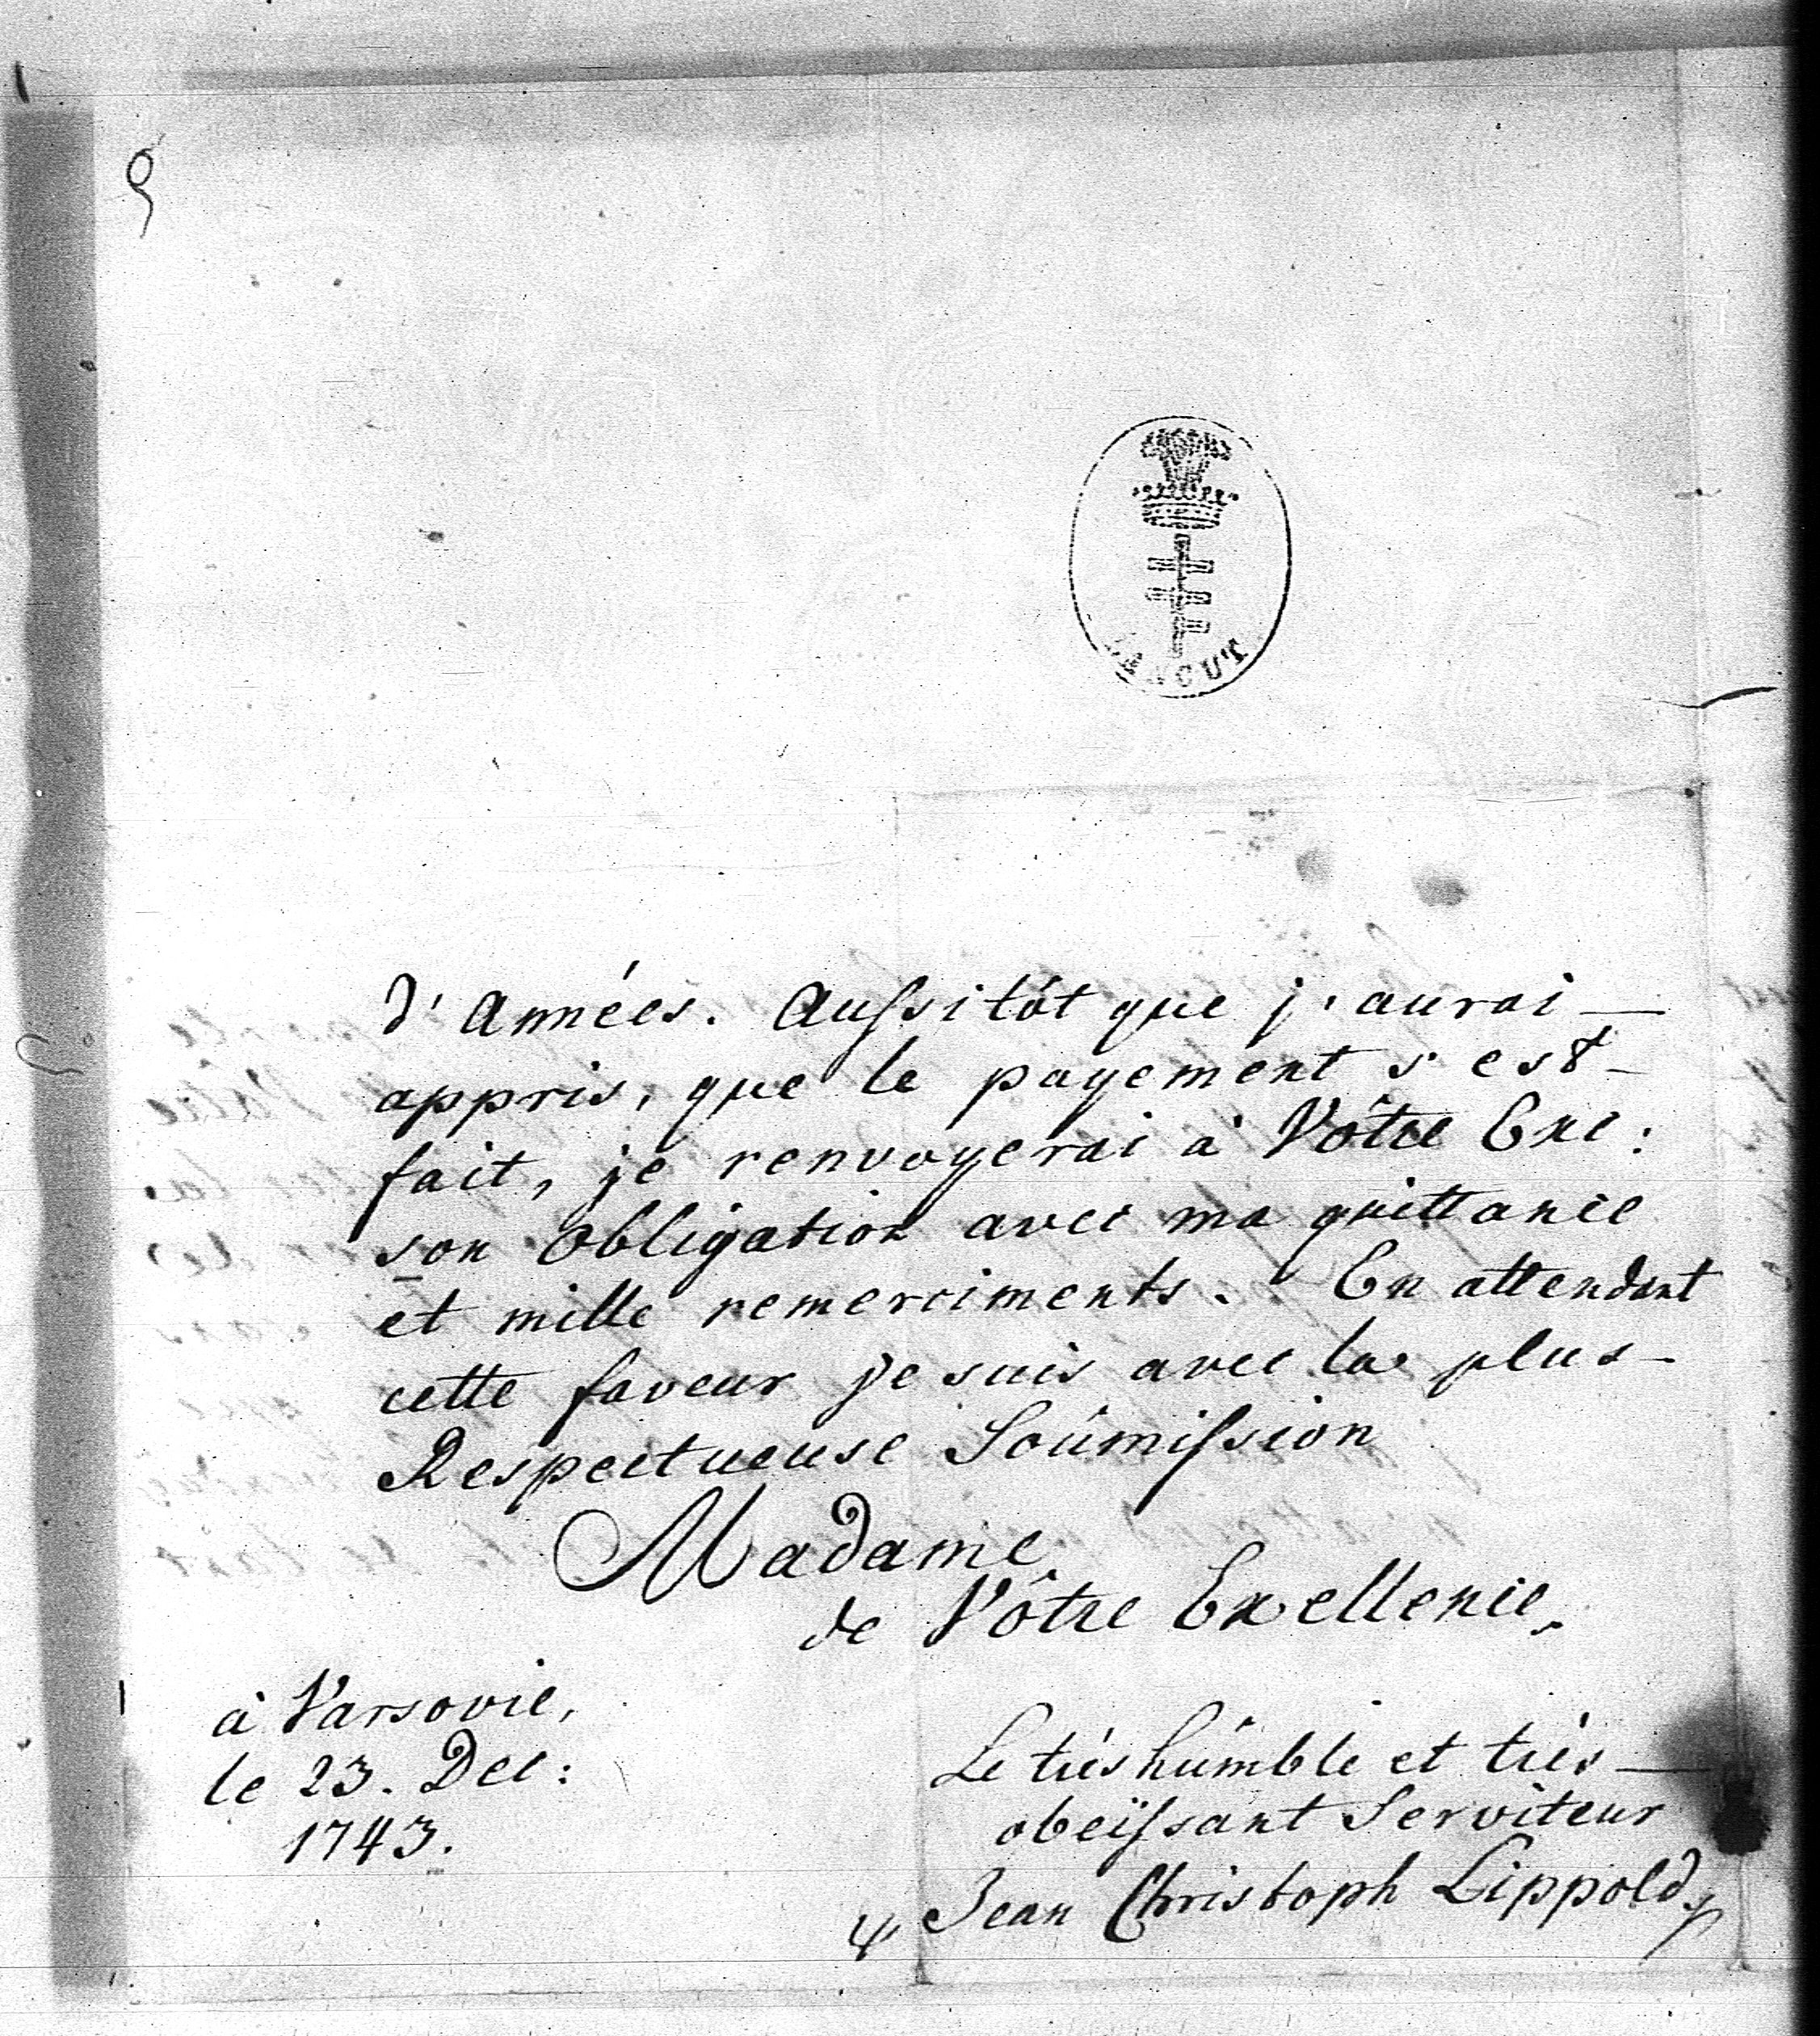 9
ŁAŃCUT
d'Années. Aussitôt que j'aurai —
appris, que le payement s'est -
fait, je renvoyerai à Vôtre Exc:
son Obligation avec ma quittance
et mille remerciments. En attendant
cette faveur je suis avec la plus -
Respectueuse Soûmission
Madame
de Vôtre Exellence,
à Varsovie,
le 23. Dec:
1743.
Le trés hûmble et trés —
obeïssant Serviteur
Jean Christoph Lippold